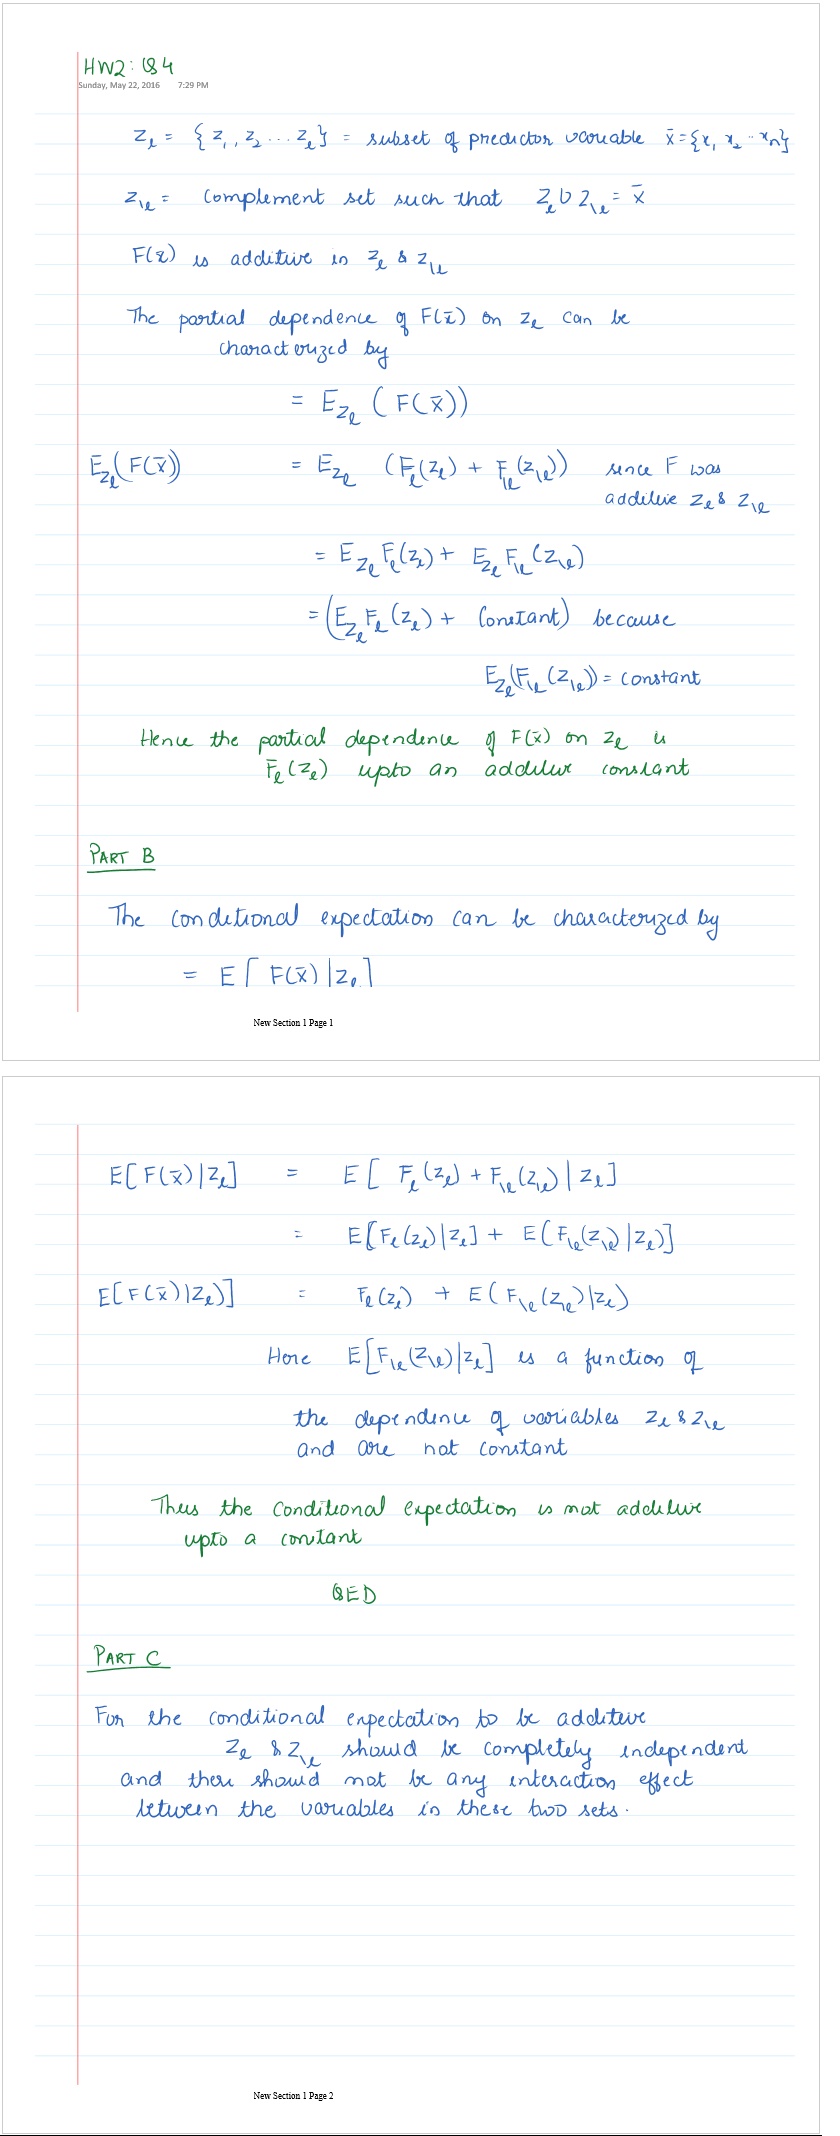 HW2: Q4
Sunday, May 22, 2016 7:29 PM
z_l = { z_1, z_2 ... z_l } = subset of predictor variable x̄ = {x_1 x_2 .. x_n}
z_\l = complement set such that Z_l ∪ Z_\l = x̄
F(x̄) is additive in z_l & z_\l
The partial dependence of F(x̄) on z_l can be
characterized by
= E_{z_l} ( F(x̄))
E_{z_l}(F(x̄)) = E_{z_l} (F_l(z_l) + F_\l(z_\l)) since F was
additive z_l & z_\l
= E_{z_l} F_l(z_l) + E_{z_l} F_\l(z_\l)
= (E_{z_l} F_l(z_l) + Constant) because
E_{z_l}(F_\l(z_\l)) = constant
Hence the partial dependence of F(x̄) on z_l is
F_l(z_l) upto an additive constant
PART B
The conditional expectation can be characterized by
= E[ F(x̄) | z_l ]
New Section 1 Page 1
E[F(x̄)|z_l] = E[ F_l(z_l) + F_\l(z_\l) | z_l ]
= E[F_l(z_l)|z_l] + E(F_\l(z_\l)|z_l)]
E[F(x̄)|z_l)] = F_l(z_l) + E(F_\l(z_\l)|z_l)
Here E[F_\l(z_\l)|z_l] is a function of
the dependence of variables z_l & z_\l
and are not constant
Thus the conditional expectation is not additive
upto a constant
QED
PART C
For the conditional expectation to be additive
z_l & z_\l should be completely independent
and there should not be any interaction effect
between the variables in these two sets.
New Section 1 Page 2